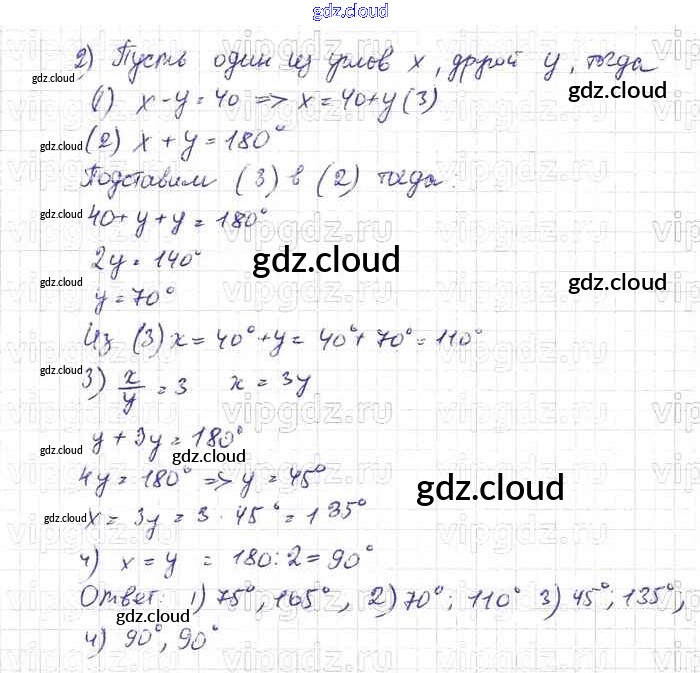 gdz.cloud
2) Пусть один из углов x, другой y, тогда
gdz.cloud
gdz.cloud
(1) x - y = 40 => x = 40 + y (3)
gdz.cloud
(2) x + y = 180°
gdz.cloud
Подставим (3) в (2) тогда:
gdz.cloud
40 + y + y = 180°
2y = 140°
gdz.cloud
gdz.cloud
gdz.cloud
y = 70°
gdz.cloud
Из (3) x = 40° + y = 40° + 70° = 110°
vipgdz.ru
gdz.cloud
3) x/y = 3 x = 3y
vipgdz.ru
y + 3y = 180°
gdz.cloud
gdz.cloud
4y = 180° => y = 45°
gdz.cloud
gdz.cloud
x = 3y = 3 · 45° = 135°
4) x = y = 180 : 2 = 90°
Ответ: 1) 75°, 105°, 2) 70°; 110° 3) 45°; 135°;
gdz.cloud
4) 90°, 90°